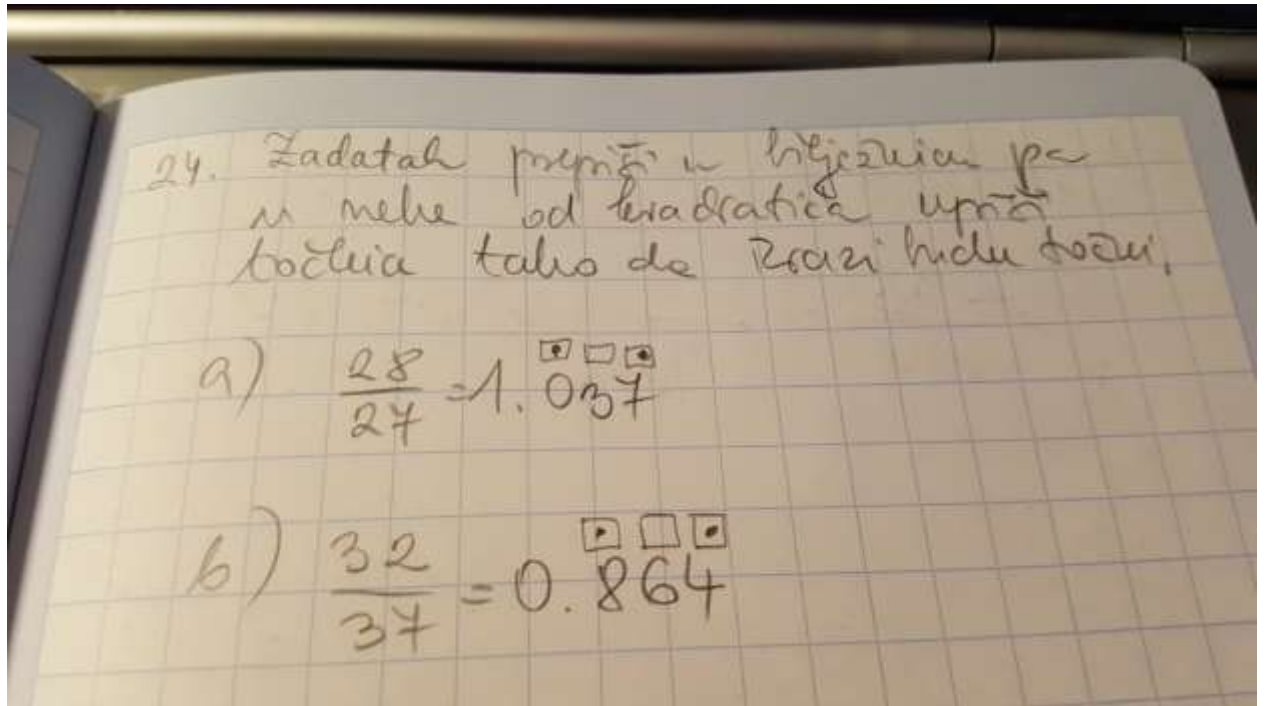 24. Zadatak prepiši u bilježnicu pa
u neke od kvadratića upiši
točkice tako da izrazi budu točni.
a) 28/27 = 1.037
b) 32/37 = 0.864